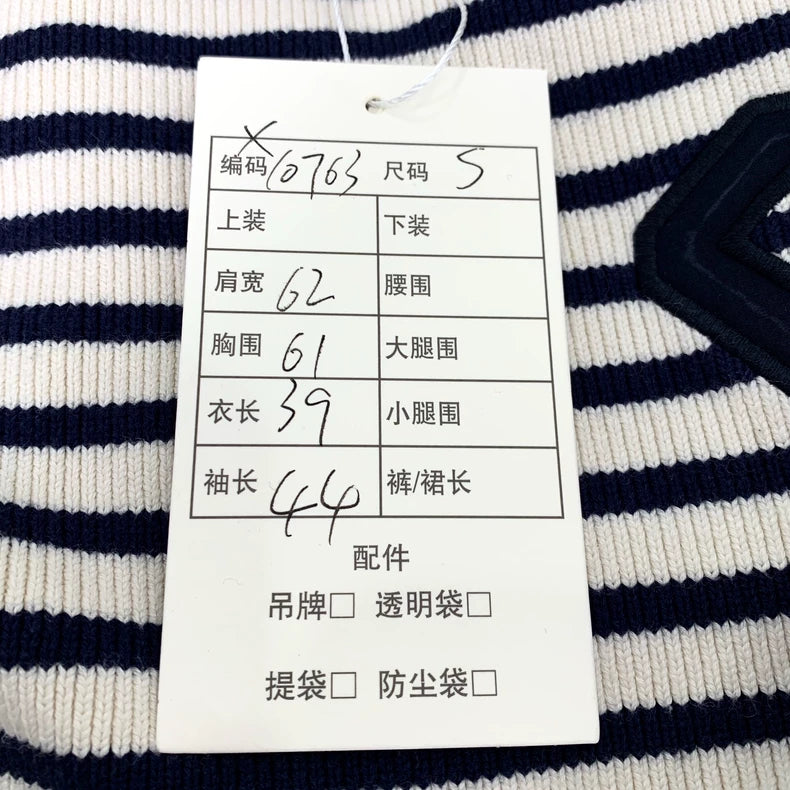 X
编码 10763 尺码 S
上装 下装
肩宽 62 腰围
胸围 61 大腿围
衣长 39 小腿围
袖长 44 裤/裙长
配件
吊牌□ 透明袋□
提袋□ 防尘袋□